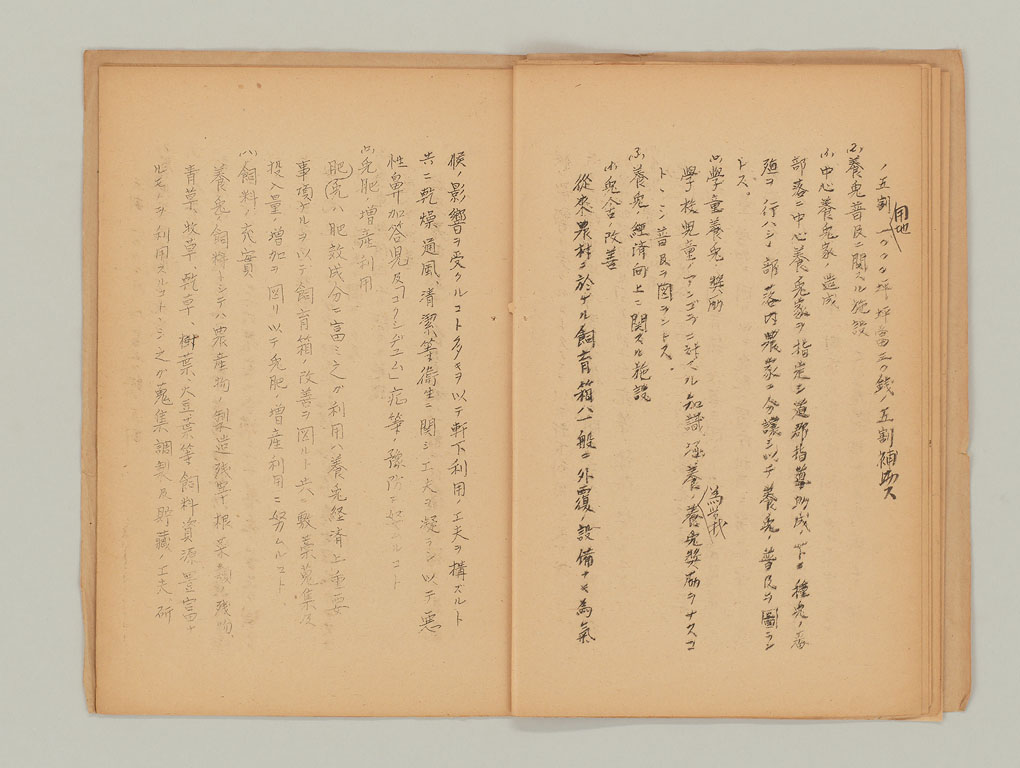 ノ五割 用地 一〇〇〇坪 坪當三〇錢 五割補助ス
(2)養兎普及ニ関スル施設
(イ)中心養兎家ノ造成
部落ニ中心養兎家ヲ指定シ道郡ノ指導助成ノ下ニ種兎ノ
殖ヲ行ハシメ部落内農家ニ分譲シ以テ養兎ノ普及ヲ圖ラン
トス。
(ロ)學童養兎ノ奬励
學校児童ノアンゴラニ対スル知識ノ涵養ノ為學校養兎奬励ヲナスコ
トトシ普及ヲ図ラントス。
(3)養兎ノ経済向上ニ関スル施設
(イ)兎舍ノ改善
従来農村ニ於ケル飼育箱ハ一般ニ外覆ノ設備ナキ為氣
候ノ影響ヲ受クルコト多キヲ以テ軒下利用ノ工夫ヲ構ズルト
共ニ乾燥通風、清潔等衛生ニ関シ工夫ヲ凝ラシ以テ悪
性鼻加答児及「コクシヂュム」症等ノ豫防ニ努ムルコト
(ロ)兎肥ノ増産利用
肥(兎)ハ肥效成分ニ富ミ之ガ利用ハ養兎経済上重要
事項ナルヲ以テ飼育箱ノ改善ヲ図ルト共ニ敷藁蒐集及
投入量ノ増加ヲ図リ以テ兎肥ノ増産利用ニ努ムルコト、
(ハ)飼料ノ充實
養兎ノ飼料トシテハ農産物ノ製造残リ、根菜類ノ残物、
青草、牧草、乾草、樹葉、大豆葉等飼料資源豊富ナ
ルモノヲ利用スルコトトシ之ガ蒐集調製及貯藏ノ工夫、研